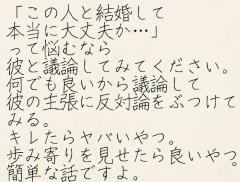 「この人と結婚して
本当に大丈夫か…」
って悩むなら
彼と議論してみてください。
何でも良いから議論して
彼の主張に反対論をぶつけて
みる。
キレたらヤバいやつ。
歩み寄りを見せたら良いやつ。
簡単な話ですよ。